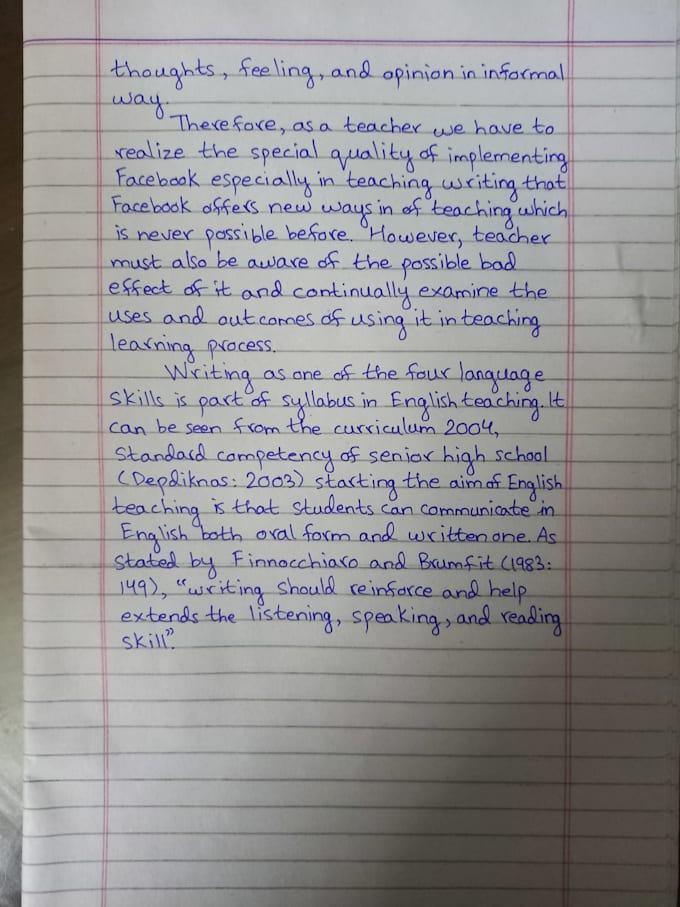 thoughts, feeling, and opinion in informal
way.
Therefore, as a teacher we have to
realize the special quality of implementing
Facebook especially in teaching writing that
Facebook offers new ways in of teaching which
is never possible before. However, teacher
must also be aware of the possible bad
effect of it and continually examine the
uses and outcomes of using it in teaching
learning process.
Writing as one of the four language
skills is part of syllabus in English teaching. It
can be seen from the curriculum 2004,
Standard competency of senior high school
(Depdiknas: 2003) starting the aim of English
teaching is that students can communicate in
English both oral form and written one. As
stated by Finnocchiaro and Brumfit (1983:
149), "writing should reinforce and help
extends the listening, speaking, and reading
skill".